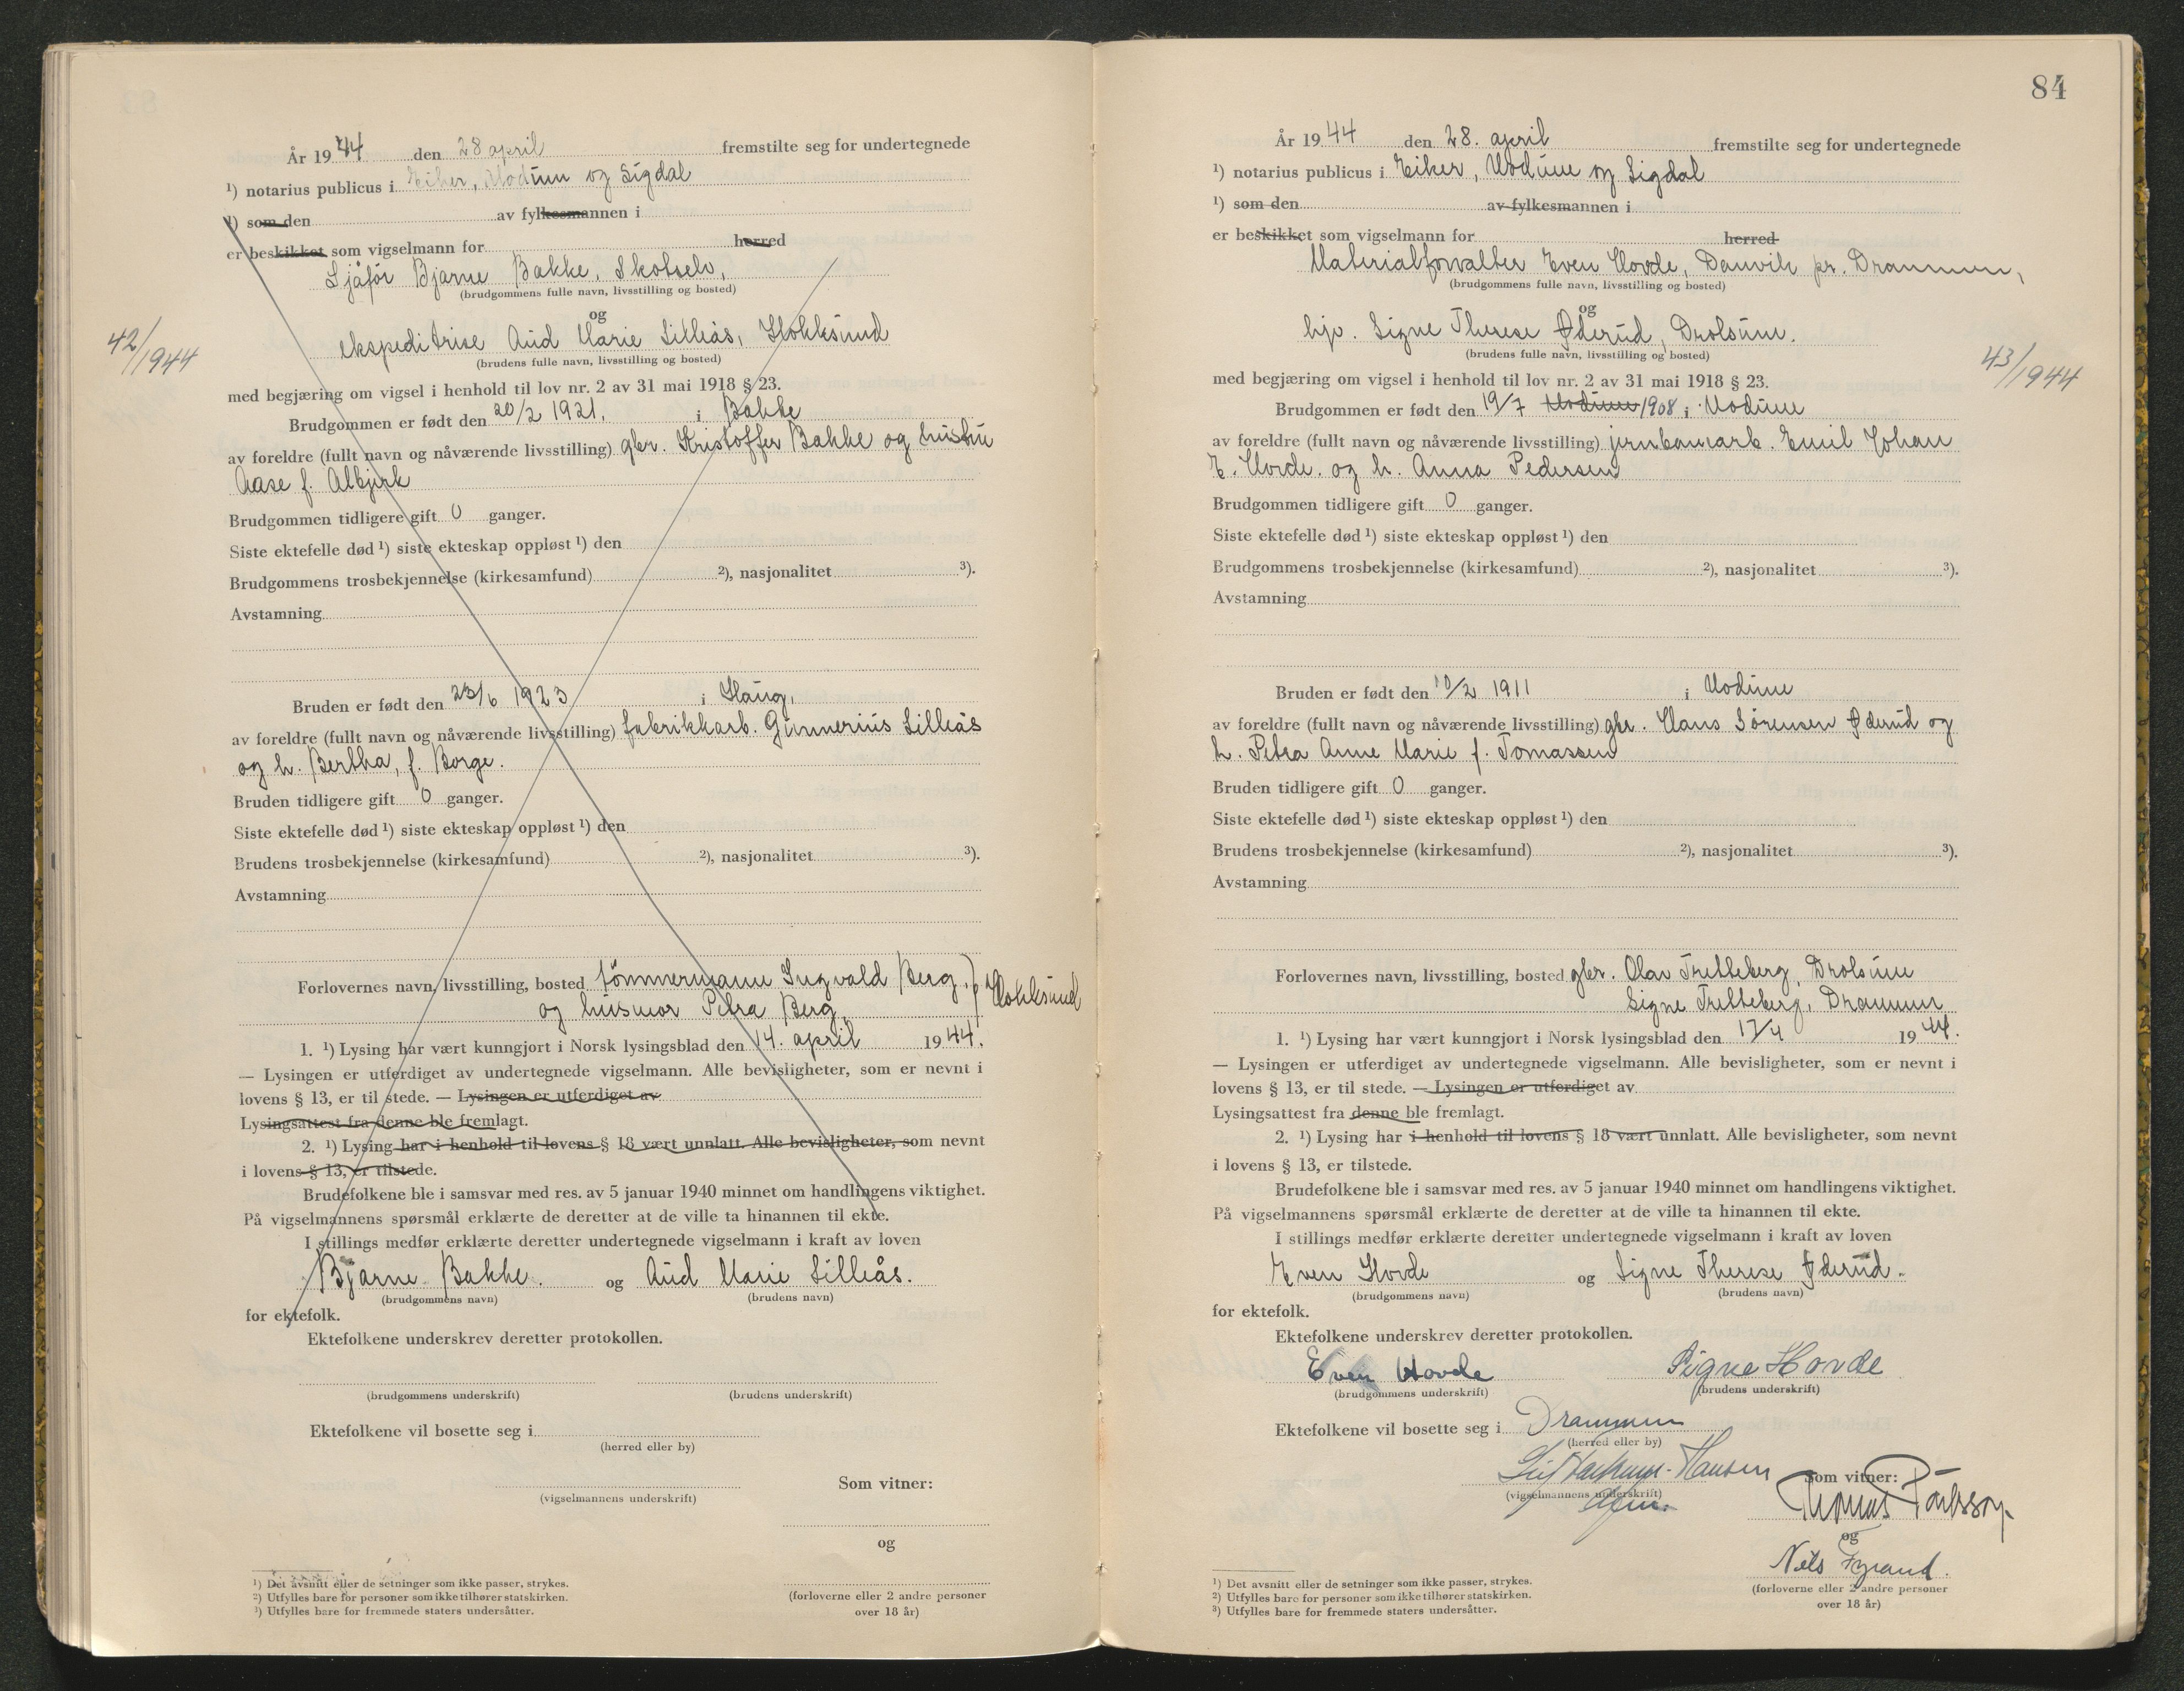 År 1944 den 28 april fremstilte seg for undertegnede
¹) notarius publicus i Eiker, Modum og Sigdal
¹) som den av fylkesmannen i
er beskikket som vigselmann for herred
Sjåfør Bjarne Bakke, Skotselv,
(brudgommens fulle navn, livsstilling og bosted)
og
ekspeditrise Aud Marie Lilleås, Hokksund
(brudens fulle navn, livsstilling og bosted)
42/1944
med begjæring om vigsel i henhold til lov nr. 2 av 31 mai 1918 § 23.
Brudgommen er født den 20/2 1921. i Bakke
av foreldre (fullt navn og nåværende livsstilling) gbr. Kristoffer Bakke og hustru
Aase f. Albjerk
Brudgommen tidligere gift 0 ganger.
Siste ektefelle død ¹) siste ekteskap oppløst ¹) den
Brudgommens trosbekjennelse (kirkesamfund) ²), nasjonalitet ³).
Avstamning
Bruden er født den 23/6 1923 i Haug,
av foreldre (fullt navn og nåværende livsstilling) fabrikkarb. Gunnerius Lilleås
og h. Bertha, f. Borge.
Bruden tidligere gift 0 ganger.
Siste ektefelle død ¹) siste ekteskap oppløst ¹) den
Brudens trosbekjennelse (kirkesamfund) ²), nasjonalitet ³).
Avstamning
Forlovernes navn, livsstilling, bosted tömmermann Ingvald Berg, } Hokksund
og husmor Petra Berg,
1. ¹) Lysing har vært kunngjort i Norsk lysingsblad den 14. april 1944.
— Lysingen er utferdiget av undertegnede vigselmann. Alle bevisligheter, som er nevnt i
lovens § 13, er til stede. — Lysingen er utferdiget av
Lysingsattest fra denne ble fremlagt.
2. ¹) Lysing har i henhold til lovens § 18 vært unnlatt. Alle bevisligheter, som nevnt
i lovens § 13, er tilstede.
Brudefolkene ble i samsvar med res. av 5 januar 1940 minnet om handlingens viktighet.
På vigselmannens spørsmål erklærte de deretter at de ville ta hinannen til ekte.
I stillings medfør erklærte deretter undertegnede vigselmann i kraft av loven
Bjarne Bakke. og Aud Marie Lilleås.
(brudgommens navn) (brudens navn)
for ektefolk.
Ektefolkene underskrev deretter protokollen.
(brudgommens underskrift) (brudens underskrift)
Ektefolkene vil bosette seg i
(herred eller by)
Som vitner:
(vigselmannens underskrift)
og
¹) Det avsnitt eller de setninger som ikke passer, strykes.
²) Utfylles bare for personer som ikke tilhører statskirken.
³) Utfylles bare for fremmede staters undersåtter.
(forloverne eller 2 andre personer
over 18 år)
84
År 1944 den 28. april fremstilte seg for undertegnede
¹) notarius publicus i Eiker, Modum og Sigdal
¹) som den av fylkesmannen i
er beskikket som vigselmann for herred
Materialforvalter Even Hovde, Danvik pr. Drammen,
(brudgommens fulle navn, livsstilling og bosted)
og
hjv. Signe Therese Øderud, Drolsum.
(brudens fulle navn, livsstilling og bosted)
43/1944
med begjæring om vigsel i henhold til lov nr. 2 av 31 mai 1918 § 23.
Brudgommen er født den 19/7 Modum 1908 i Modum
av foreldre (fullt navn og nåværende livsstilling) jernbanearb. Emil Johan
E. Hovde. og h. Anna Pedersen
Brudgommen tidligere gift 0 ganger.
Siste ektefelle død ¹) siste ekteskap oppløst ¹) den
Brudgommens trosbekjennelse (kirkesamfund) ²), nasjonalitet ³).
Avstamning
Bruden er født den 10/2 1911 i Modum
av foreldre (fullt navn og nåværende livsstilling) gbr. Hans Sørensen Øderud og
h. Petra Anne Marie f. Tomassen
Bruden tidligere gift 0 ganger.
Siste ektefelle død ¹) siste ekteskap oppløst ¹) den
Brudens trosbekjennelse (kirkesamfund) ²), nasjonalitet ³).
Avstamning
Forlovernes navn, livsstilling, bosted gbr. Olav Tretteberg, Drolsum
Signe Tretteberg, Drammen
1. ¹) Lysing har vært kunngjort i Norsk lysingsblad den 17/4 1944.
— Lysingen er utferdiget av undertegnede vigselmann. Alle bevisligheter, som er nevnt i
lovens § 13, er til stede. — Lysingen er utferdiget av
Lysingsattest fra denne ble fremlagt.
2. ¹) Lysing har i henhold til lovens § 18 vært unnlatt. Alle bevisligheter, som nevnt
i lovens § 13, er tilstede.
Brudefolkene ble i samsvar med res. av 5 januar 1940 minnet om handlingens viktighet.
På vigselmannens spørsmål erklærte de deretter at de ville ta hinannen til ekte.
I stillings medfør erklærte deretter undertegnede vigselmann i kraft av loven
Even Hovde og Signe Therese Øderud.
(brudgommens navn) (brudens navn)
for ektefolk.
Ektefolkene underskrev deretter protokollen.
Even Hovde Signe Hovde
(brudgommens underskrift) (brudens underskrift)
Ektefolkene vil bosette seg i Drammen
(herred eller by)
Hansen Som vitner:
(vigselmannens underskrift)
Thomas
og
Nils
¹) Det avsnitt eller de setninger som ikke passer, strykes.
²) Utfylles bare for personer som ikke tilhører statskirken.
³) Utfylles bare for fremmede staters undersåtter.
(forloverne eller 2 andre personer
over 18 år)